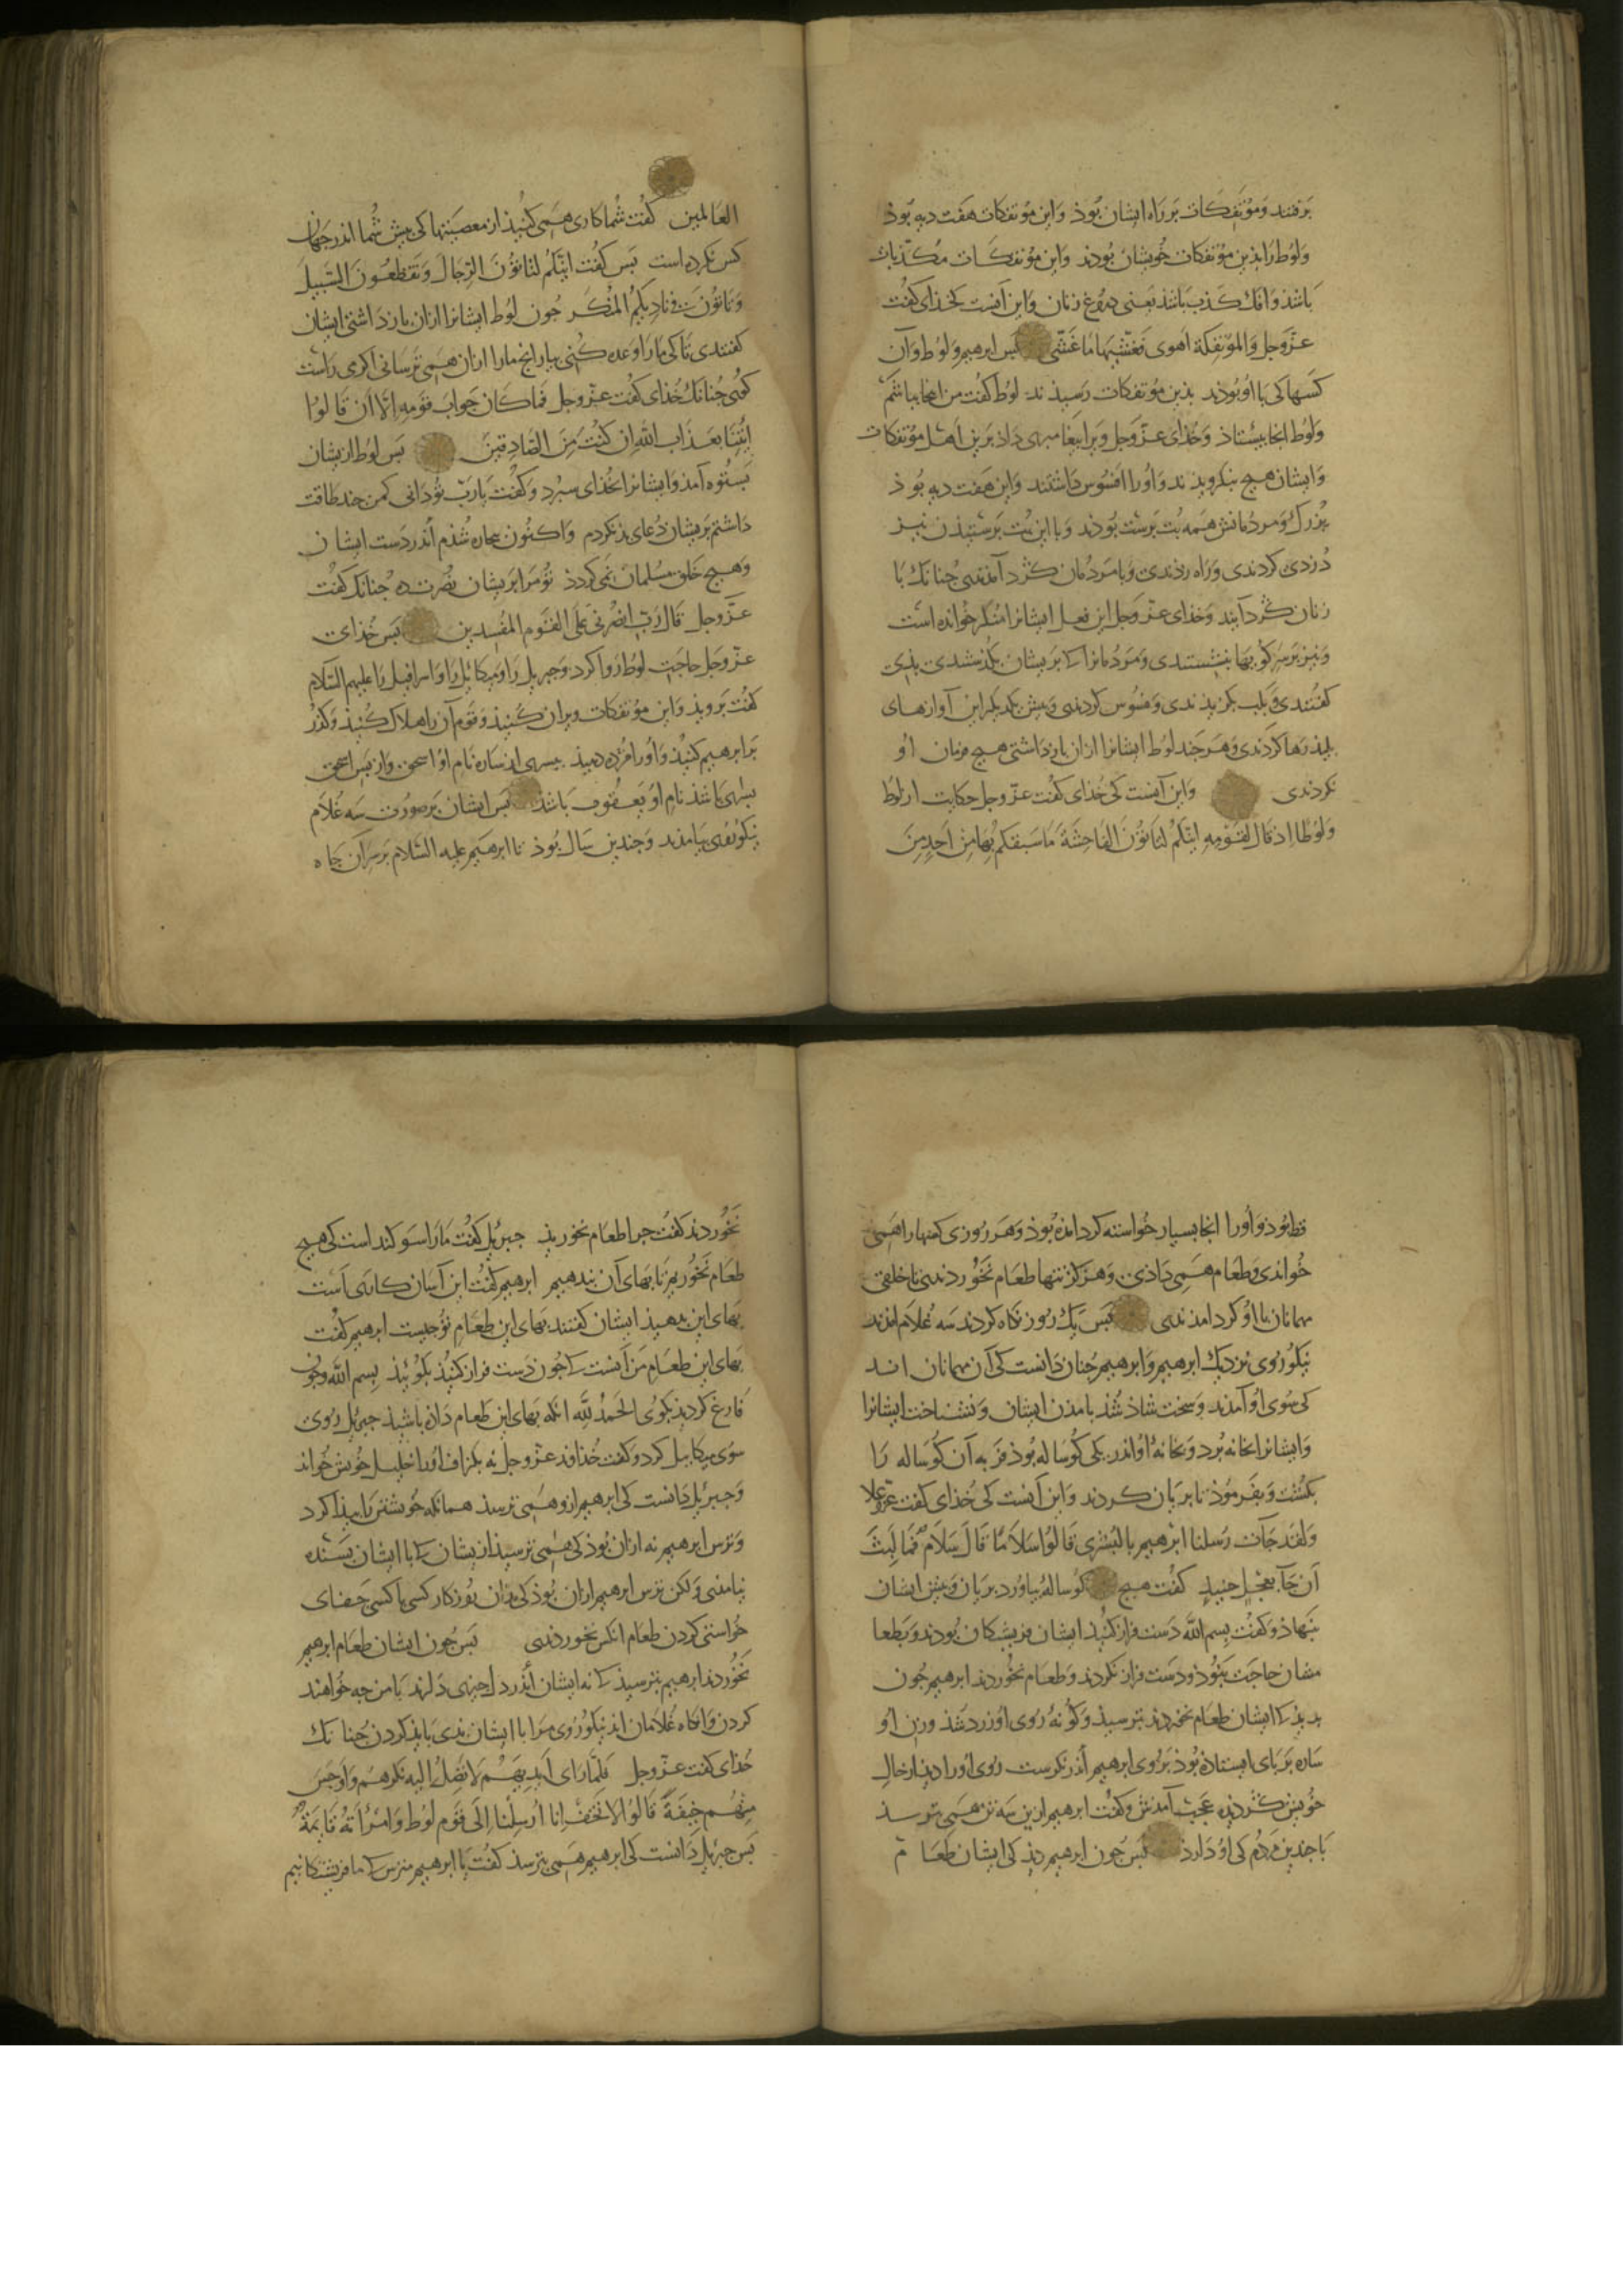 برفتند و مؤتفكات بر راه ایشان بوذ و این مؤتفكات هفت دیه بوذ
و لوط را بذین مؤتفكات خویشان بودند و این مؤتفكات مكذّبات
باشذ و افك كذب باشذ یعنی دروغ زنان و این آنست كخذای كفت
عزّ و جل و المؤتفكة اهوی فغشّیها ما غشّی بس ابرهیم و لوط و آن
كسها كی با او بوذند بذین مؤتفكات رسیذند لوط كفت من اینجا باشم
و لوط انجا بیستاذ و خذای عزّ و جل ویرا بیغامبری داذ برین اهل مؤتفكات
و ایشان هیچ بنكرویذند و او را افسوس داشتند و این هفت دیه بوذ
بزرك و مردمانش همه بت برست بوذند و با این بت برستیذن نیز
دزدی كردندی و راه زدندی و با مردمان كرد آمدندی جنانك با
زنان كرد آیند و خذای عزّ و جل این فعل ایشانرا منكر خوانده است
و نیز بر سر كویها بنشستندی و مردمانرا كی بر ایشان بكذشتندی بذی
كفتندی و
بلیذ رها كردندی و هر جند لوط ایشانرا ازان بازداشتی هیچ فرمان او
نكردندی و این آنست كی خذای كفت عزّ و جل حكایت از لوط
و لوطا اذ قال لقومه ائنّكم لتاتون الفاحشة ما سبقكم بها من احدٍ من
العالمین كفت شما كاری همی كنیذ از معصیتها كی بیش شما اندر جهان
كس نكرده است بس كفت ائنّكم لتاتون الرّجال و تقطعون السّبیل
و تاتون فی نادیكم المنكر جون لوط ایشانرا ازان بازداشتی ایشان
كفتندی تا كی ما را وعده كنی بیار انج ما را ازان همی ترسانی اكر راست
كوئی جنانك خذای كفت عزّ و جل فما كان جواب قومه الّا ان قالوا
ائتنا بعذاب الله ان كنت من الصّادقین بس لوط ازیشان
بستوه آمذ و ایشانرا بخذای سبرد و كفت یا ربّ تو دانی كمن جند طاقت
داشتم بریشان دعای بذ نكردم و اكنون بیجاره شذم اندر دست ایشان
و هیج خلق مسلمان نمی كردد تو مرا بریشان نصرت ده جنانك كفت
عزّ و جل قال ربّ انصرنی علی القوم المفسدین بس خذای
عزّ و جل حاجت لوط روا كرد و جبریل را و میكائیل را و اسرافیل را علیهم السّلام
كفت برویذ و این مؤتفكات ویران كنیذ و قوم آن را هلاك كنیذ و كذر
بر ابرهیم كنیذ و او را مژده دهیذ ببسری از ساره نام او اسحق و از بس اسحق
بسری باشذ نام او یعقوب باشذ بس ایشان بر صورت سه غلام
نیكو روی بیامذند و جندین سال بوذ تا ابرهیم علیه السّلام بر سر آن جاه
و او را انجا بسیار خواسته كرد امذه بوذ و هر روزی كمهمان را همی
خواندی و طعام همی داذی و هركز تنها طعام نخوردندی تا خلقی
مهمانان با او كرد امدندی بس یك روز نكاه كردند سه غلام امذند
نیكو روی نزدیك ابرهیم و ابرهیم جنان دانست كی آن مهمانان اند
كی سوی او آمذند و سخت شاذ شذ بامذن ایشان و نشناخت ایشانرا
و ایشانرا بخانه برد و بخانهٔ او اندر یكی كوساله بوذ فربه آن كوساله را
بكشت و بفرموذ تا بریان كردند و این آنست كی خذای كفت عزّ و علا
و لقد جآت رسلنا ابرهیم بالبشری قالوا سلاما قال سلام فما لبث
ان جآ بعجلٍ حنیذٍ كفت هیج كوساله بیاورد بریان و بیش ایشان
بنهاذ و كفت بسم الله دست فراز كنیذ ایشان فریشتكان بوذند و بطعا
مشان حاجت نبوذ و دست فراز نكردند و طعام نخوردند ابرهیم جون
بدید كی ایشان طعام نخوردند بترسیذ و كونهٔ روی او زرد شذ و زن او
ساره بر بای ایستاده بوذ بروی ابرهیم اندر نكرست روی او را دیذ از حال
خویش كردیده عجب آمذش و كفت ابرهیم ازین سه تن همی ترسذ
با جندین مردم كی او دارذ بس جون ابرهیم دیذ كی ایشان طعام
نخوردند كفت جرا طعام نخوریذ جبرئیل كفت ما را سوكند است كی هیج
طعام نخوریم تا بهای آن بندهیم ابرهیم كفت این آسان كاری است
بهای این بدهیذ ایشان كفتند بهای این طعام تو جیست ابرهیم كفت
بهای این طعام من آنست كی جون دست فراز كنیذ بكوئیذ بسم الله و جون
فارغ كردیذ بكوئی الحمد لله انكه بهای این طعام داذه باشیذ جبرئیل روی
سوی میكاییل كرد و كفت خذاوند عزّ و جل نه بكزاف او را خلیل خویش خواند
و جبرئیل دانست كی ابرهیم ازو همی ترسذ همانكه خویشتن را بیذا كرد
و ترس ابرهیم نه ازان بوذ كی همی ترسیذ ازیشان كی با ایشان بسنده
نیامذی و لكن ترس ابرهیم ازان بوذ كی بذان روزكار كسی با كسی جفای
خواستی كردن طعام انكس نخوردندی بس جون ایشان طعام ابرهیم
نخوردند ابرهیم بترسیذ كی نه ایشان اندر دل جیزی دارند با من جه خواهند
كردن و انكاه غلامان اند نیكو روی مرا با ایشان بدی باید كردن جنانك
خذای كفت عزّ و جل فلمّا رای ایدیهم لا تصل الیه نكرهم و اوجس
منهم خیفةً قالوا لا تخف انا ارسلنا الی قوم لوط و امراته قایمة
بس جبرئیل دانست كی ابرهیم همی بترسذ كفت یا ابرهیم مترس كی ما فریشتكانیم